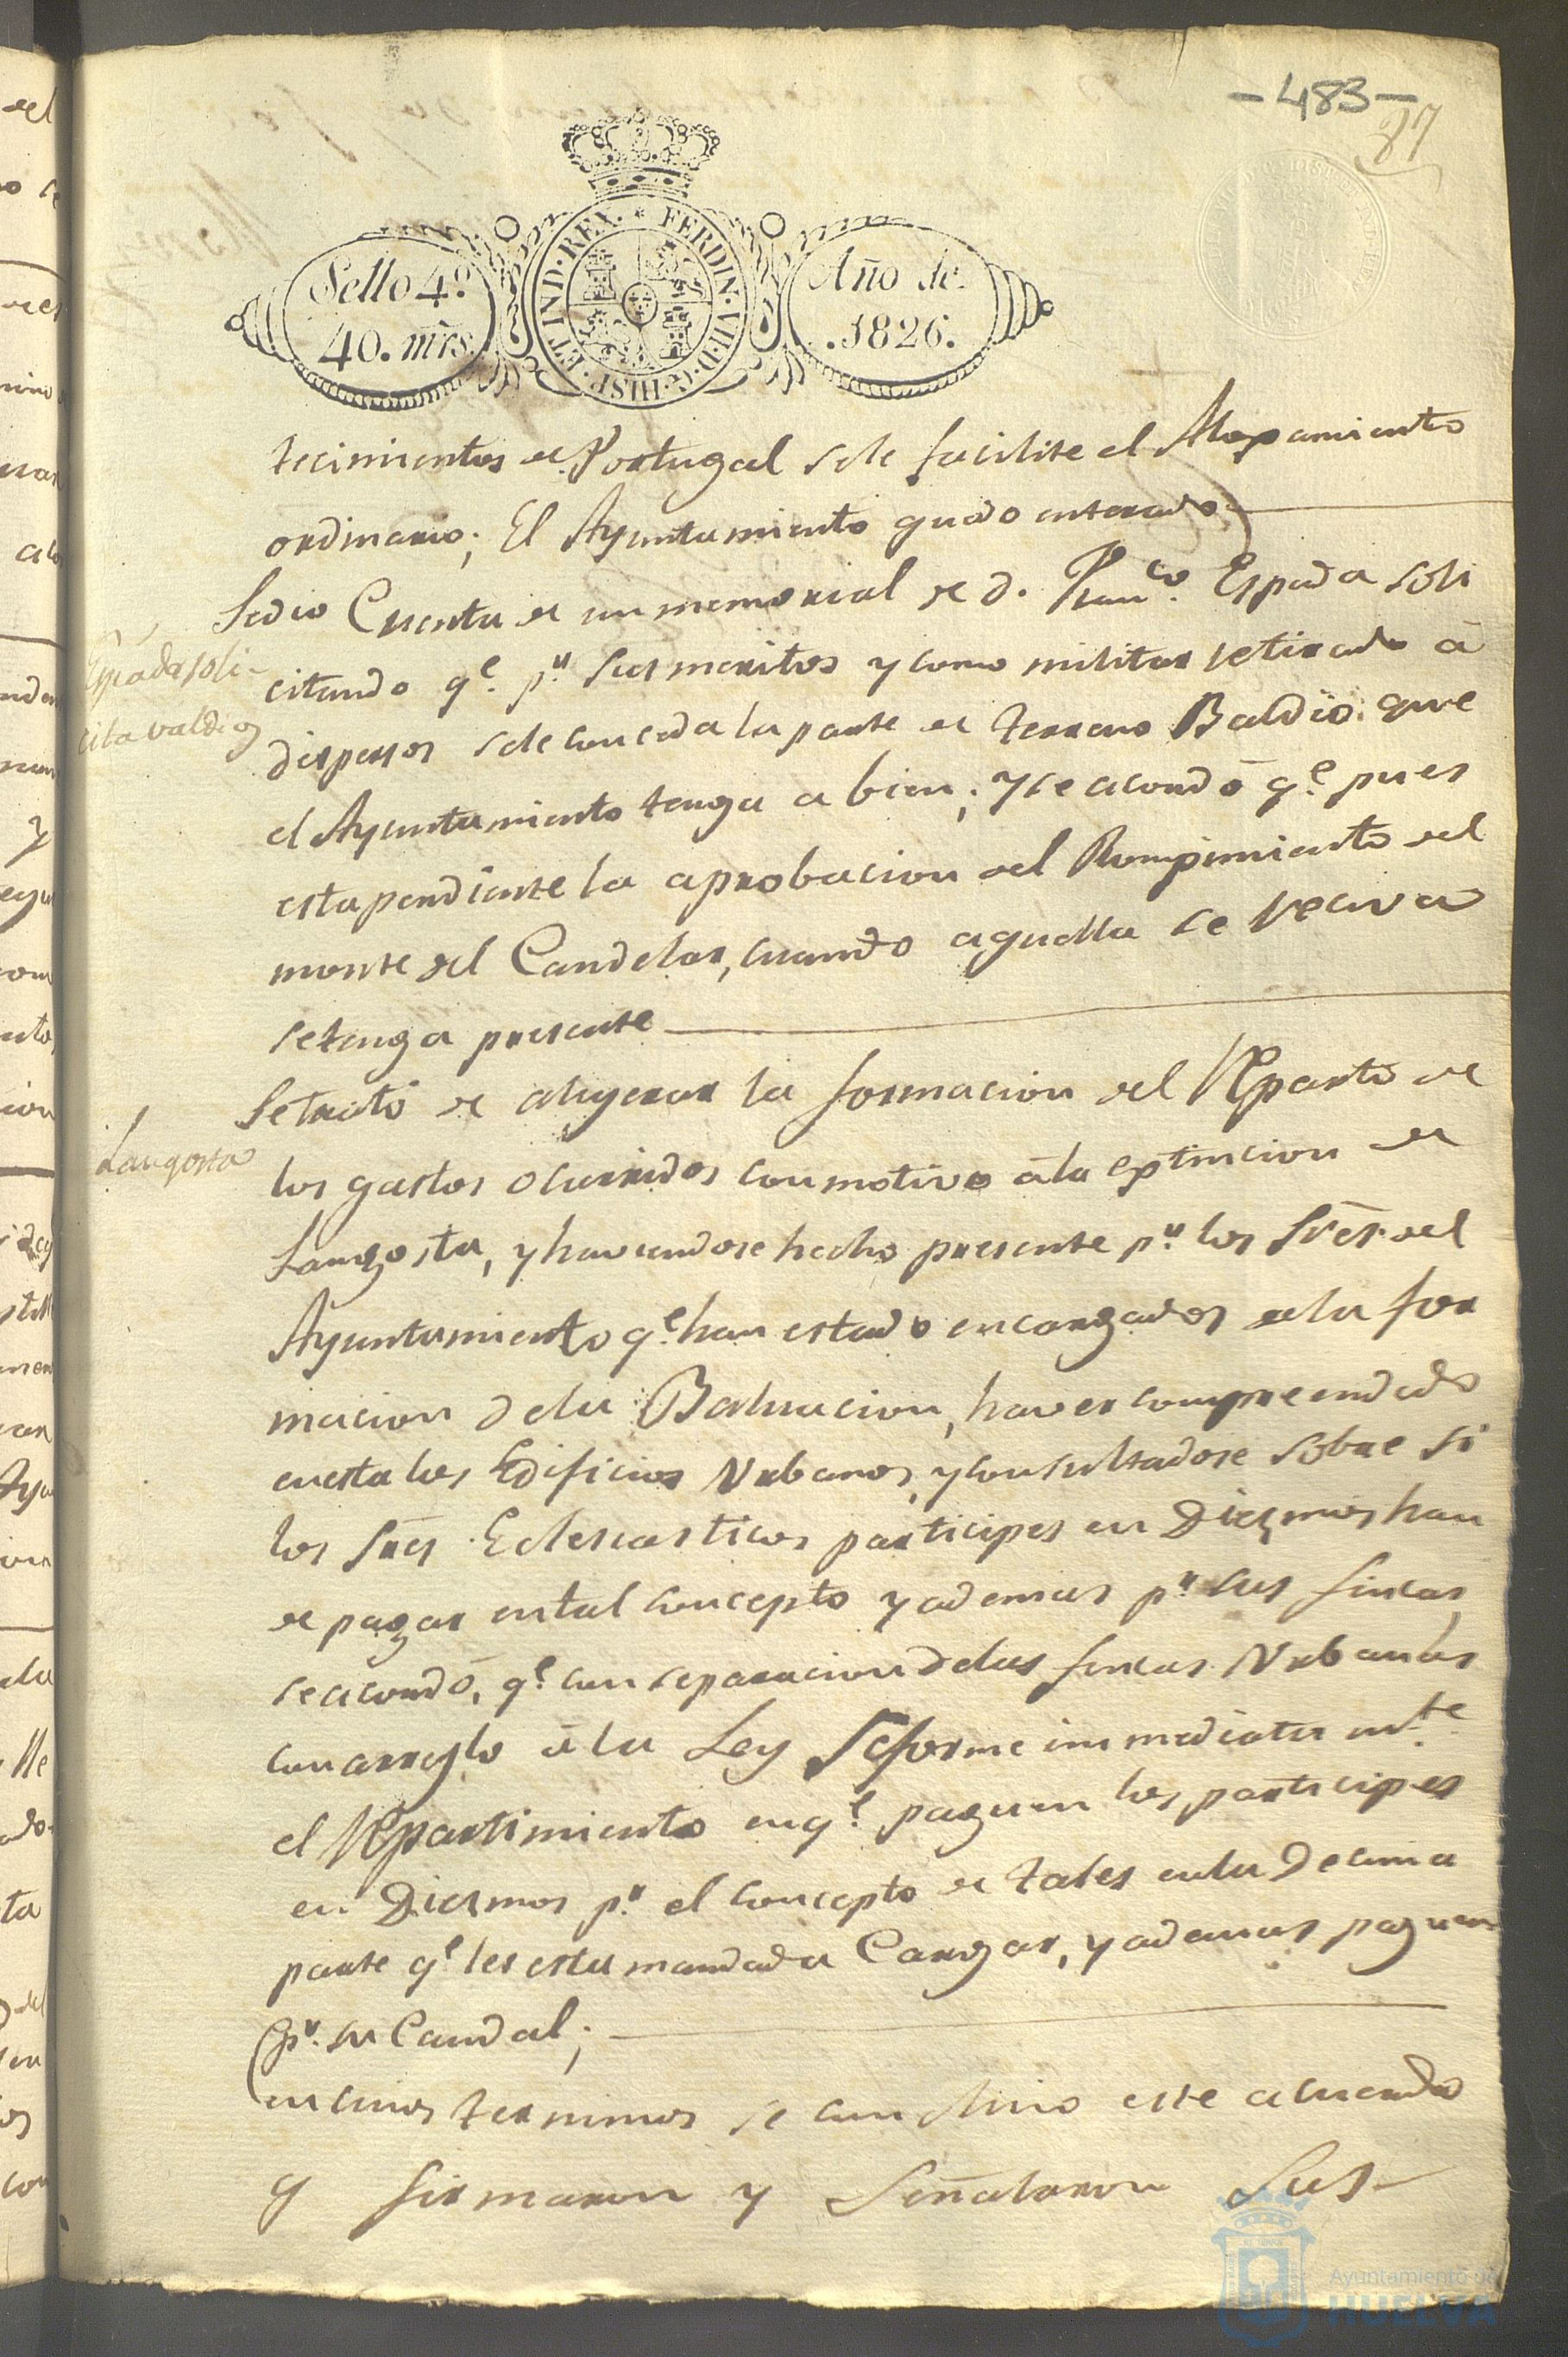 -483-
87
Sello 4º.
40. mrs.
HISP. ET IND. REX. * FERDIN. VII. D. G.
Año de
.1826.
tecimientos de Portugal sele facilite el Alojamiento
ordinario; El Ayuntamiento quedo enterado
Sedio Cuenta de un memorial de d. Franco. Espada soli
Espada soli-
cita valdios
citando qe. pr. sus meritos y como militar retirado á
dispersos sele conceda la parte de terreno Baldio que
el Ayuntamiento tenga a bien; y se acordó qe. pues
esta pendiente la aprobacion del Rompimiento del
monte del Candelar, cuando aquella se reciva
setenga presente
Setrató de aligerar la formacion del Reparto de
Langosta
los gastos ocurridos con motivo á la extincion de
Langosta, y haviendose hecho presente pr. los Sres. del
Ayuntamiento qe. han estado encargados dela for
macion dela Baluacion, haver comprendido
enesta los Edificios Urbanos, y consultadose sobre si
los Sres. Eclesiasticos participes en Diezmos han
de pagar ental concepto y ademas pr. sus fincas,
se acordó, qe. con separacion delas fincas Urbanas
con arreglo á la Ley seforme inmediatamte.
el Repartimiento enqe. paguen los participes
en Diezmos pr. el concepto de tales enla Decima
parte qe. les esta mandada Cargar, y ademas paguen
pr. su Caudal;
en cuios terminos se concluio este acuerdo
y firmaron y señalaron sus
Ayuntamiento de
HUELVA